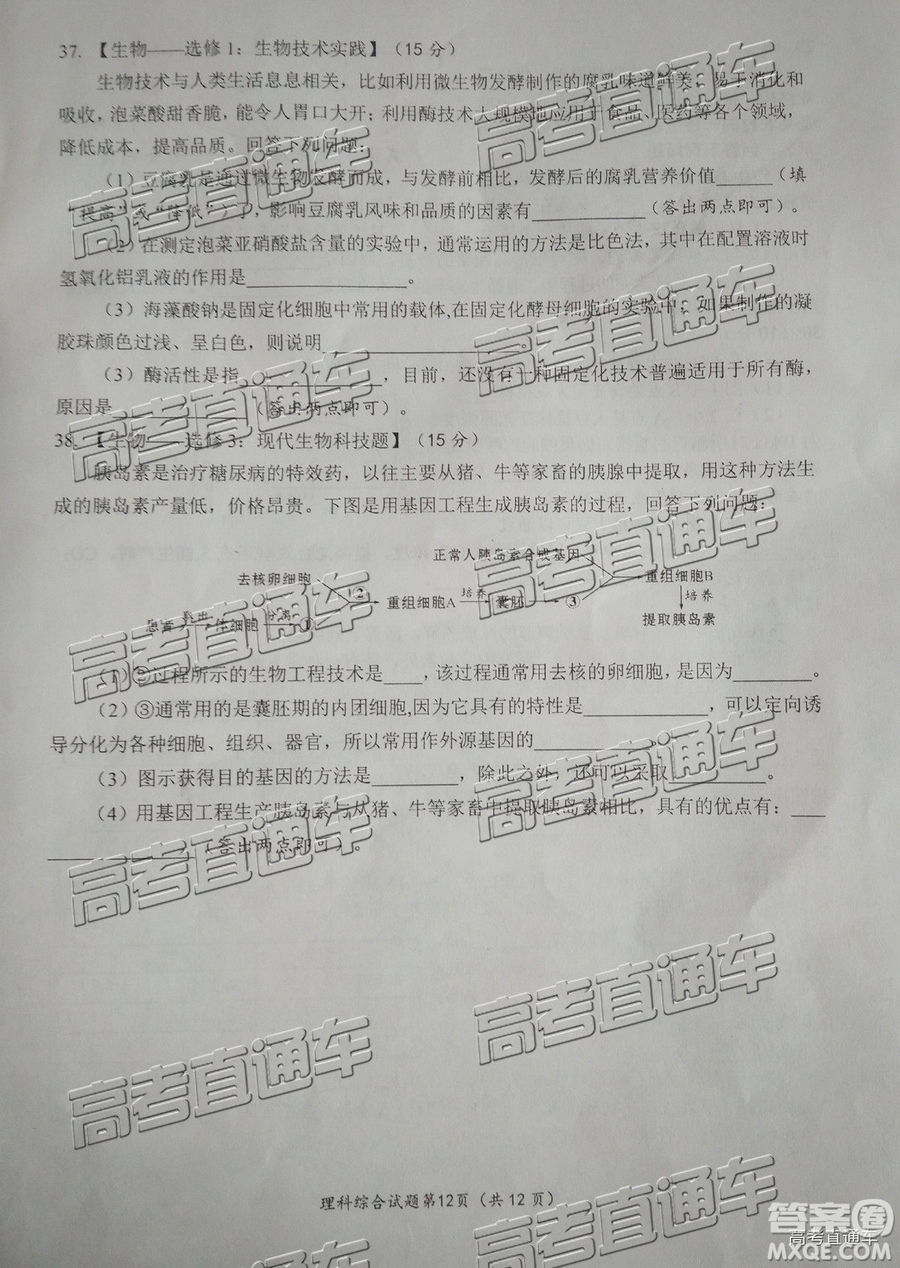 37. 【生物——选修1：生物技术实践】（15分）
生物技术与人类生活息息相关，比如利用微生物发酵制作的腐乳味道鲜美、易于消化和
吸收，泡菜酸甜香脆，能令人胃口大开；利用酶技术大规模地应用于食品、医药等各个领域，
降低成本，提高品质。回答下列问题：
（1）豆腐乳是通过微生物发酵而成，与发酵前相比，发酵后的腐乳营养价值______（填
“提高”或“降低”），影响豆腐乳风味和品质的因素有____________（答出两点即可）。
（2）在测定泡菜亚硝酸盐含量的实验中，通常运用的方法是比色法，其中在配置溶液时
氢氧化铝乳液的作用是________________。
（3）海藻酸钠是固定化细胞中常用的载体,在固定化酵母细胞的实验中，如果制作的凝
胶珠颜色过浅、呈白色，则说明____________________。
（3）酶活性是指______________，目前，还没有一种固定化技术普遍适用于所有酶，
原因是______________（答出两点即可）。
38. 【生物——选修3：现代生物科技题】（15分）
胰岛素是治疗糖尿病的特效药，以往主要从猪、牛等家畜的胰腺中提取，用这种方法生
成的胰岛素产量低，价格昂贵。下图是用基因工程生成胰岛素的过程，回答下列问题：
正常人胰岛素合成基因
去核卵细胞
② 重组细胞A 培养 囊胚 ③ 重组细胞B
培养
患者 取出 体细胞 分离 ①
提取胰岛素
（1）②过程所示的生物工程技术是____，该过程通常用去核的卵细胞，是因为________。
（2）③通常用的是囊胚期的内团细胞,因为它具有的特性是____________，可以定向诱
导分化为各种细胞、组织、器官，所以常用作外源基因的________________。
（3）图示获得目的基因的方法是________，除此之外，还可以采取__________。
（4）用基因工程生产胰岛素与从猪、牛等家畜中提取胰岛素相比，具有的优点有：___
______________（答出两点即可）。
理科综合试题第12页（共12页）
高考直通车
高考直通车
高考直通车
高考直通车
高考直通车
高考直通车
高考直通车
高考直通车
高考直通车
高考直通车
高考直通车
高考直通车
答案圈
高考直通车
MXQE.COM